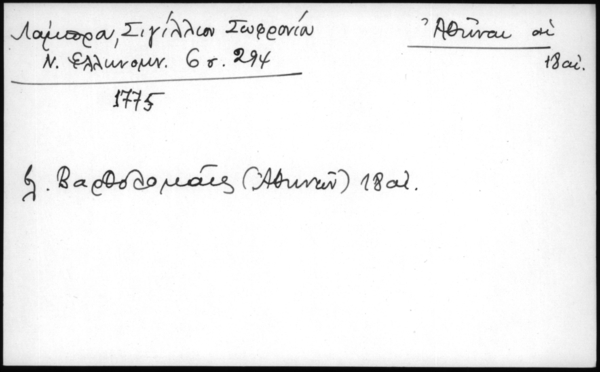 Λάμπρου, Σιγίλλιον Σωφρονίου
Ν. Ελληνομν. 6 σ. 294
1775
Ἀθῆναι αἱ
18 αἰ.
βλ. Βαρθολομαῖος (Ἀθηνῶν) 18 αἰ.